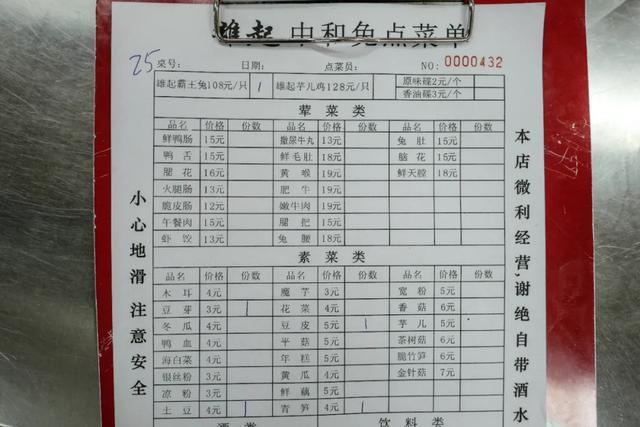 雄起 中和兔点菜单
25
桌号: 日期: 点菜员: NO: 0000432
雄起霸王兔108元/只 1 雄起芋儿鸡128元/只 原味碟2元/个
香油碟3元/个
荤菜类
品名 价格 份数 品名 价格 份数 品名 价格 份数
鲜鸭肠 15元 撒尿牛丸 13元 兔肚 15元
鸭舌 15元 鲜毛肚 18元 脑花 15元
腰花 16元 黄喉 19元 鲜天膛 18元
火腿肠 13元 肥牛 19元
脆皮肠 12元 嫩牛肉 19元
午餐肉 15元 腿把 15元
虾饺 13元 兔腰 18元
素菜类
品名 价格 份数 品名 价格 份数 品名 价格 份数
木耳 4元 魔芋 3元 宽粉 5元
豆芽 3元 1 花菜 4元 香菇 6元
冬瓜 4元 豆皮 5元 1 芋儿 5元
鸭血 4元 平菇 5元 茶树菇 6元
海白菜 4元 年糕 5元 脆竹笋 6元
银丝粉 3元 黄瓜 4元 金针菇 7元
凉粉 3元 鲜藕 5元
土豆 4元 1 青笋 4元 1
酒类 饮料类
小心地滑 注意安全
本店微利经营,谢绝自带酒水